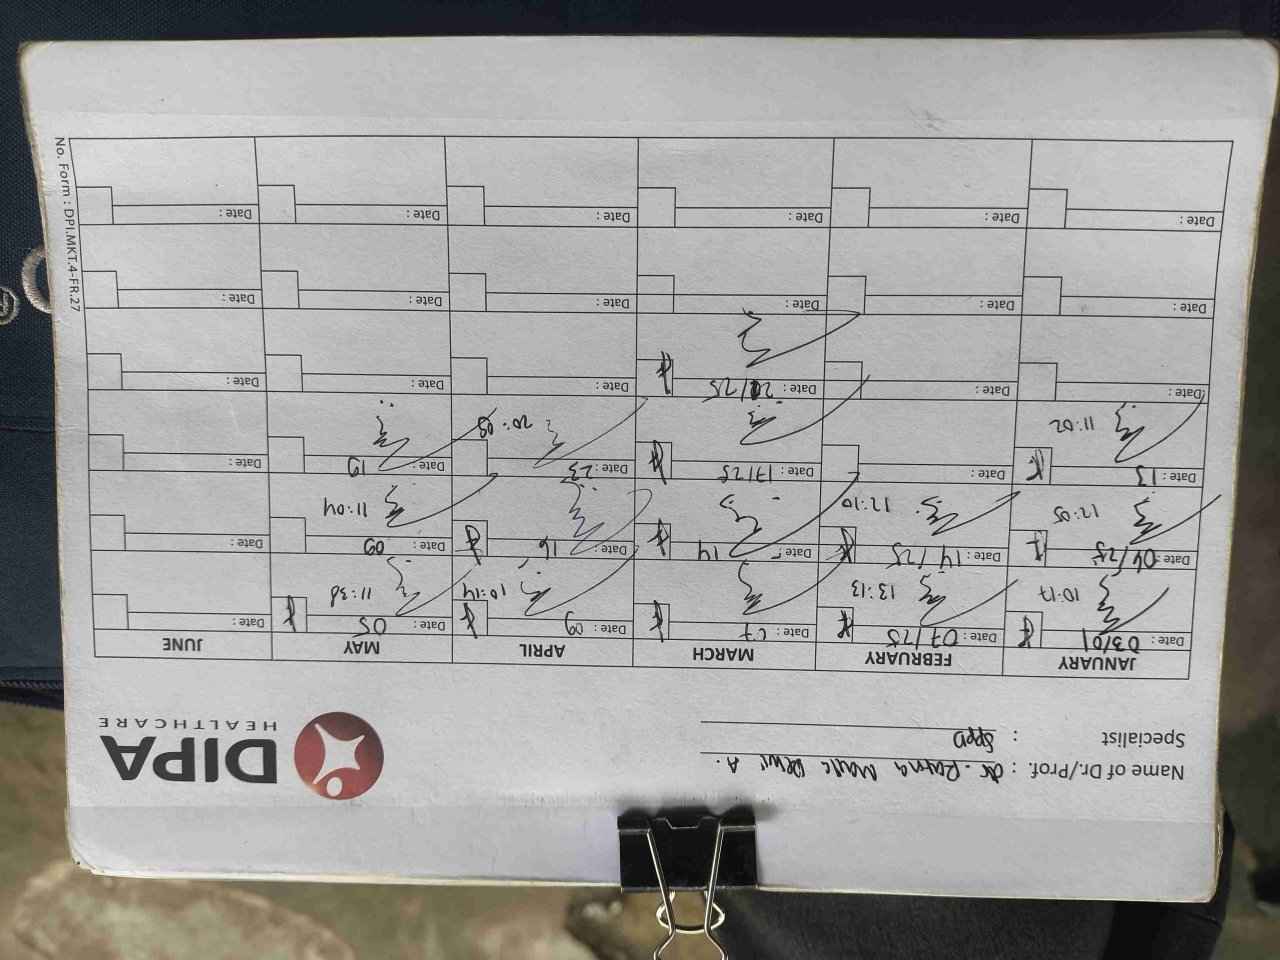 Name of Dr./Prof. : dr. Ratna Dewi A.
Specialist : SppD
DIPA
HEALTHCARE
JANUARY FEBRUARY MARCH APRIL MAY JUNE
Date : 03/01 Date : 07/25 Date : 07 Date : 09 Date : 05 Date :
10:17 13:13 10:14 11:38
Date : Date : 14/25 Date : 14 Date : 16 Date : 09 Date :
12:05 12:10 11:04
Date : 13 Date : Date : 17/25 Date : 23 Date : 19 Date :
11:02
Date : Date : Date : Date : Date : Date :
Date : Date : Date : Date : Date : Date :
Date : Date : Date : Date : Date : Date :
No. Form : DPI.MKT.4-FR.27